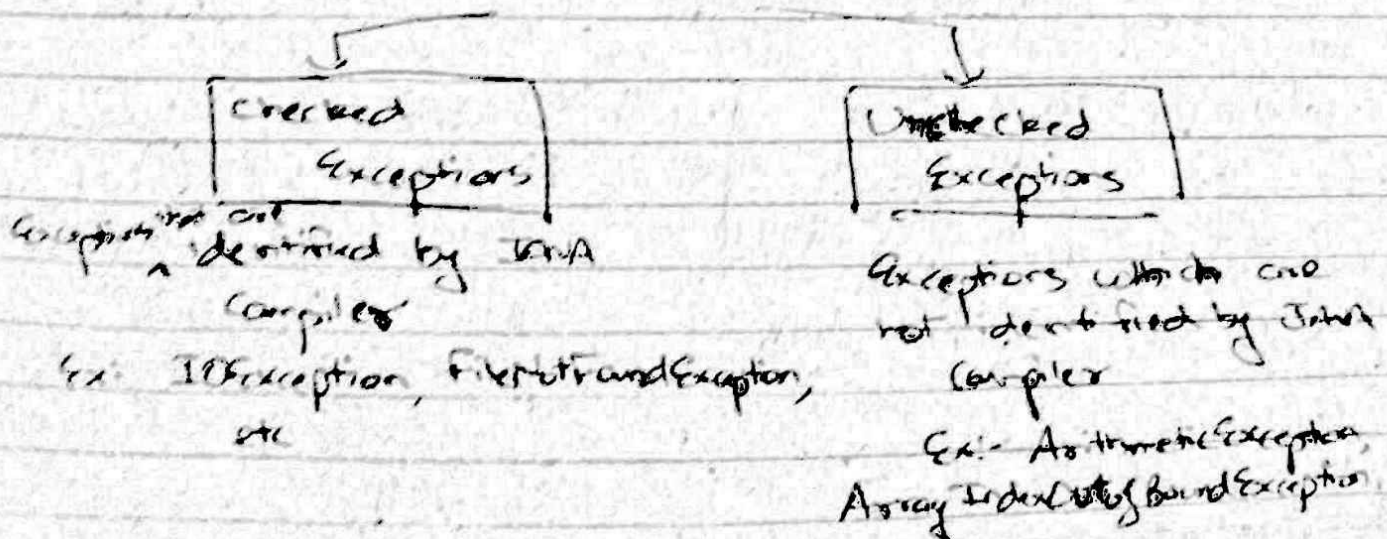 Checked
Exceptions
Exceptions that are
identified by JAVA
Compiler
Ex:- IOException, FileNotFoundException,
etc
Unchecked
Exceptions
Exceptions which are
not identified by JAVA
Compiler
Ex:- ArithmeticException,
ArrayIndexOutofBoundException